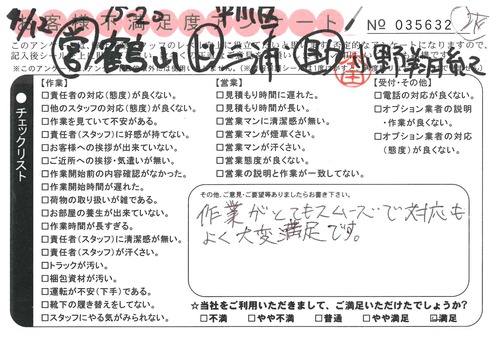 4/12 15-20 平川区
お客様不満足度アンケート! No 035632
営 鶴山 三浦 助 小野 朝紀
チェックリスト
【作業】
□責任者の対応(態度)が良くない。
□他のスタッフの対応(態度)が良くない。
□作業を見ていて不安がある。
□責任者(スタッフ)に好感が持てない。
□お客様への挨拶が出来ていない。
□ご近所への挨拶・気遣いが無い。
□作業開始前の内容確認がなかった。
□作業開始時間が遅れた。
□荷物の取り扱いが雑である。
□お部屋の養生が出来ていない。
□作業時間が長すぎる。
□責任者(スタッフ)に清潔感が無い。
□責任者(スタッフ)が汗くさい。
□トラックが汚い。
□梱包資材が汚い。
□運転が不安(下手)である。
□靴下の履き替えをしてない。
□スタッフにやる気がみられない。
【営業】
□見積もり時間に遅れた。
□見積もり時間が長い。
□営業マンに清潔感が無い。
□営業マンが煙草くさい。
□営業マンが汗くさい。
□営業態度が良くない。
□営業の説明と作業が一致してない。
【受付・その他】
□電話の対応が良くない。
□オプション業者の説明
・作業が良くない。
□オプション業者の対応
(態度)が良くない。
その他、ご意見・ご要望等ありましたらお書き下さい。
作業がとてもスムーズで対応も
よく大変満足です。
☆当社をご利用いただきまして、ご満足いただけたでしょうか?
□不満 □やや不満 □普通 □やや満足 ☑満足